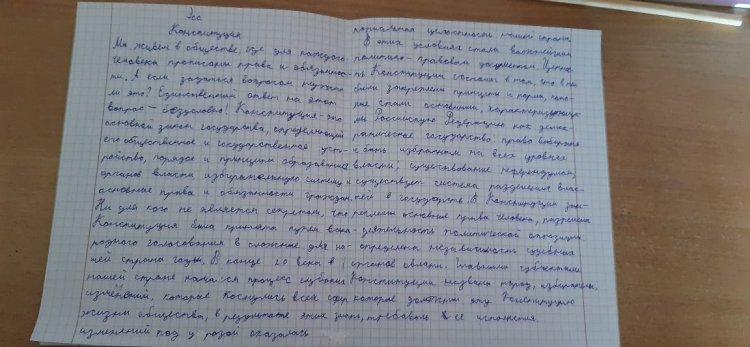 Эсс
Конституция
Мы живем в обществе, где для каждого
человека прописаны права и обязаннос-
ти. А если задаться вопросом нужно
ли это? Единственный ответ на этот
вопрос – безусловно! Конституция – это
основной закон государства, определяющий
его общественное и государственное уст-
ройство, порядок и принципы образования
органов власти избирательную систему и
основные права и обязанности граждан.
Ни для кого не является секретом, что
Конституция была принята путем всена-
родного голосования в сложные для на-
шей страны годы. В конце 20 века в
нашей стране начался процесс глубоких
изменений, которые коснулись всех сфер
жизни общества, в результате этих
изменений под угрозой оказалась
целостность нашей страны.
В этих условиях стала важнейшим
политико-правовым документом. Ценнос-
ть Конституции состоит в том, что в ней
были закреплены принципы и нормы, кото-
рые стали основными, характеризующи-
ми Российскую Федерацию как демок-
ратическое государство: право выбирать
и быть избранным на всех уровнях
власти; существование референдума,
существует система разделения влас-
тей в государстве. В Конституции
основные права человека, разрешена
деятельность политической оппозиции
определена независимость судебных
органов власти. Главными субъектами
Конституции назван народ, избиратели,
которые должны эту Конституцию
знать, требовать её исполнения.